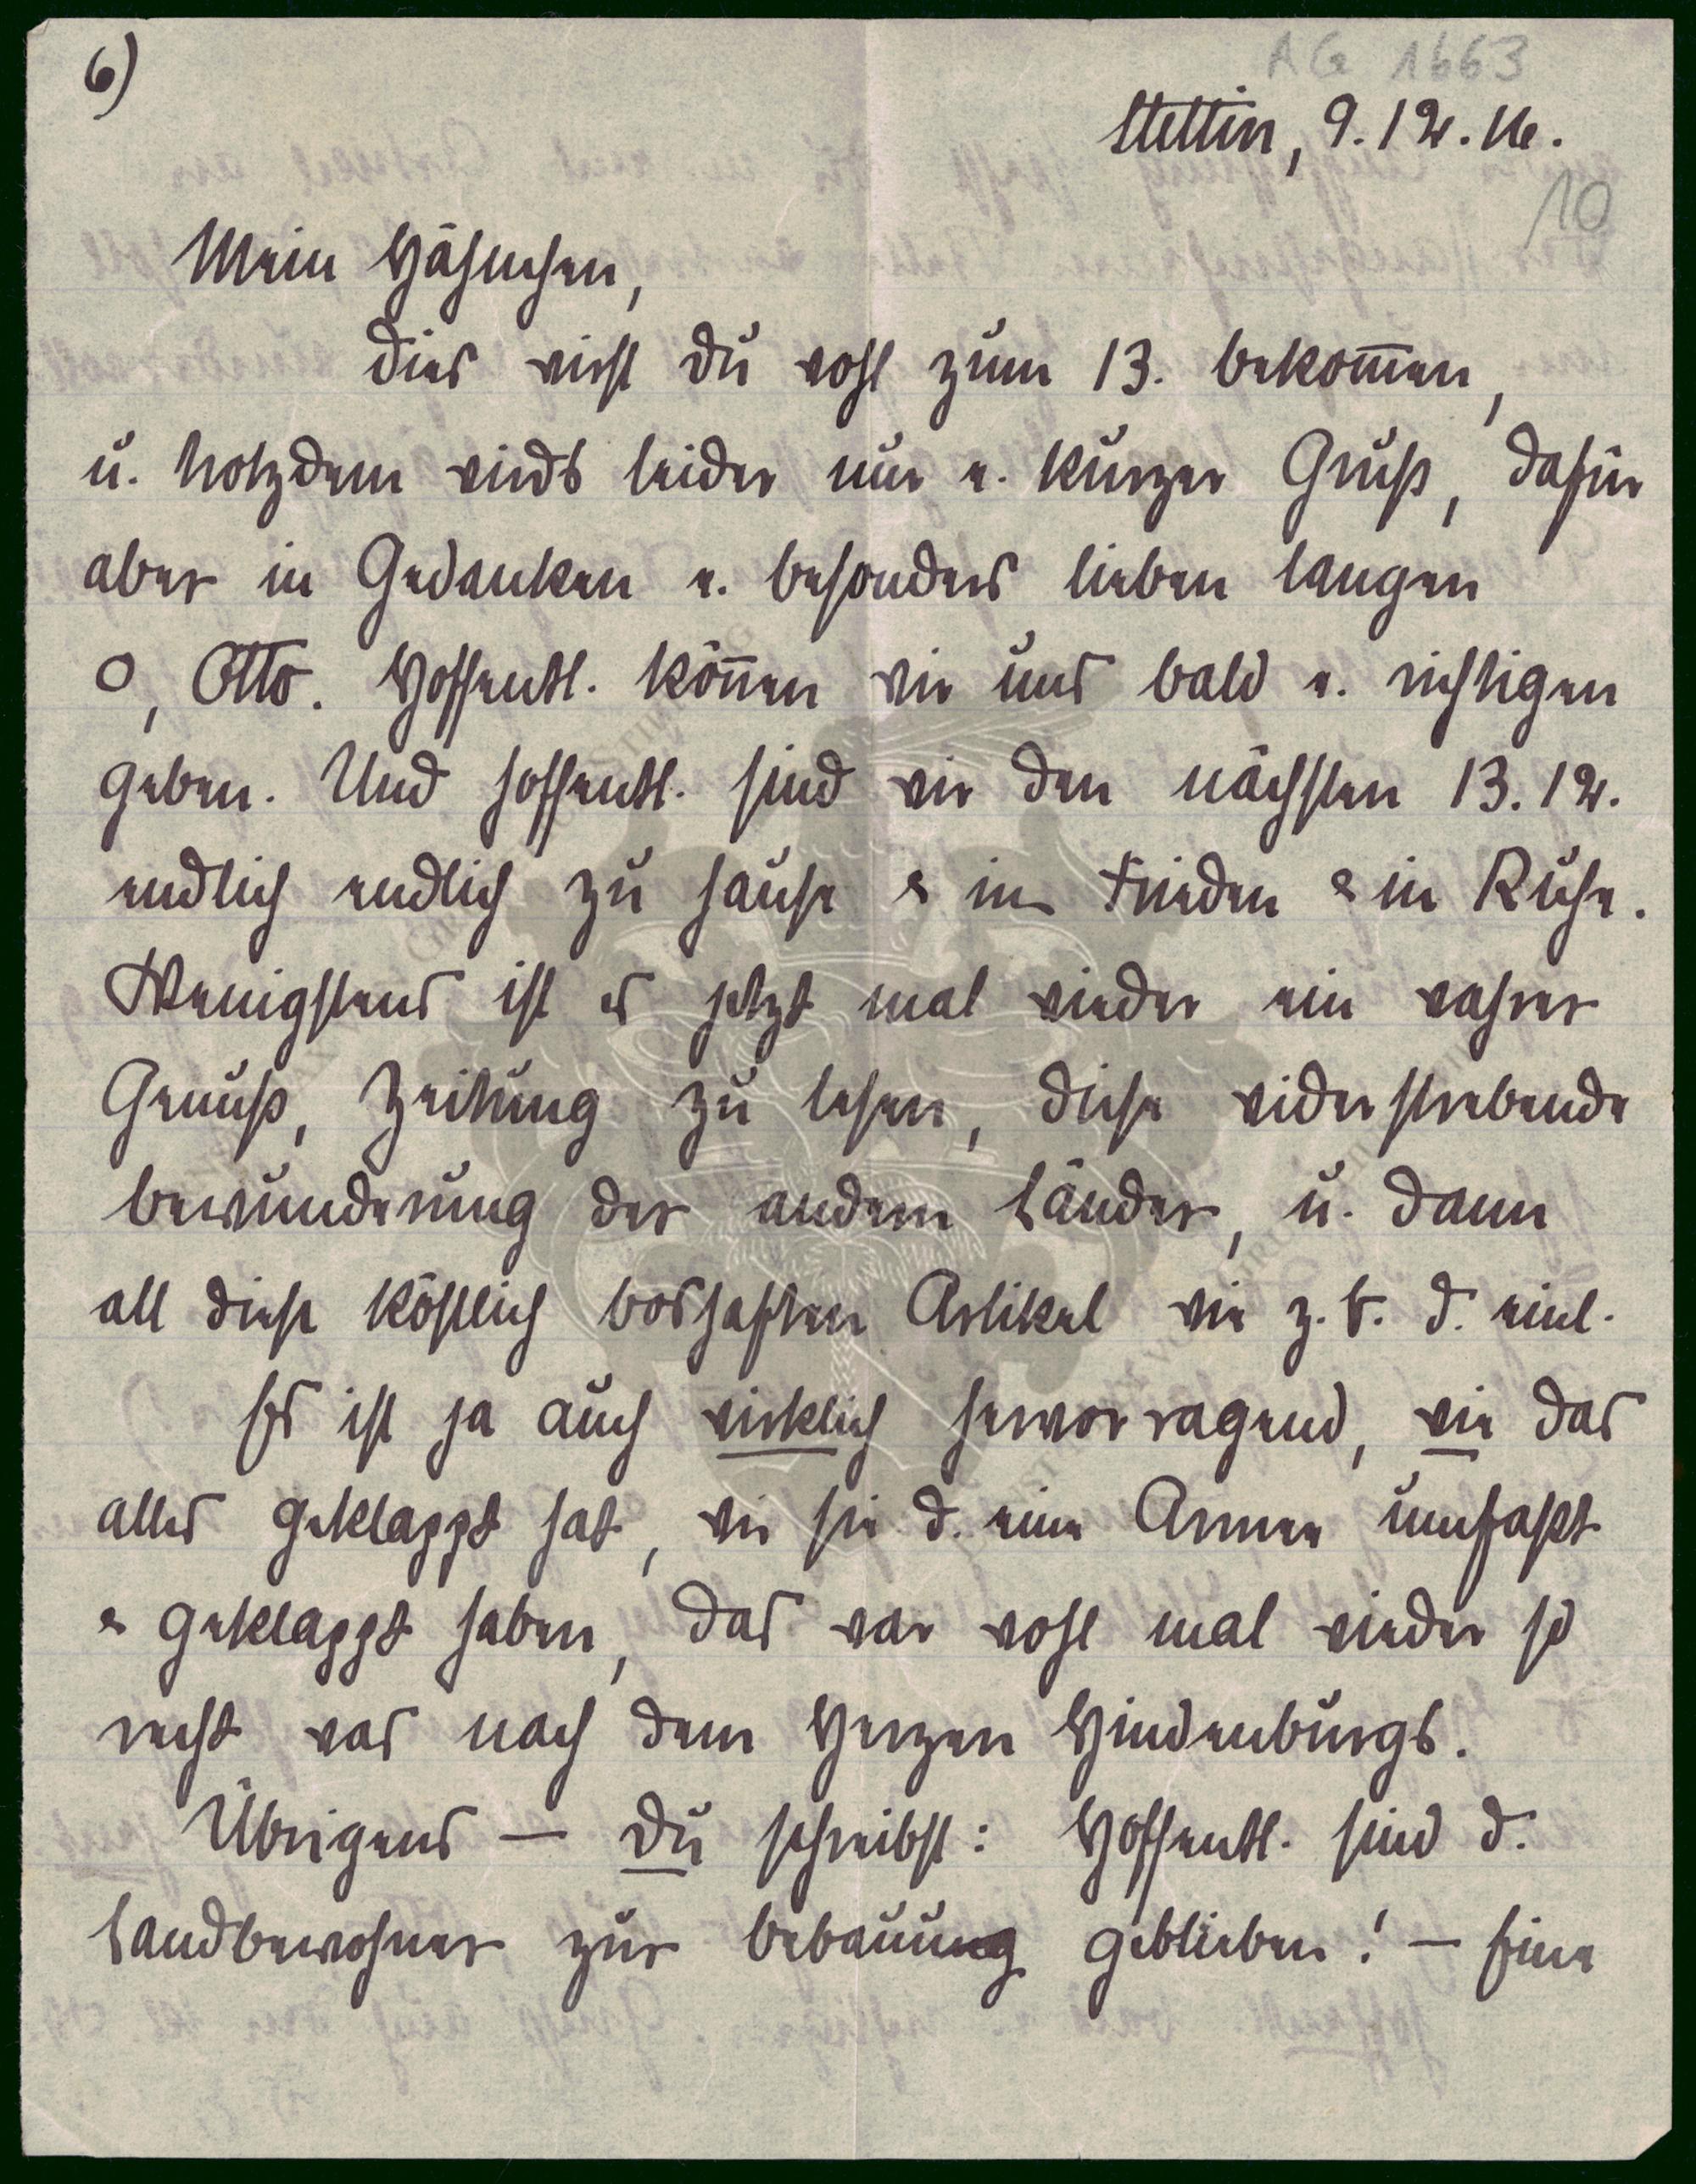 6)
AG 1663
Stettin, 9.12.16.
10
Mein Häschen,
Dies wirst Du wohl zum 13. bekom̄en,
u. trotzdem wirds leider nur e. kurzer Gruß, dafür
aber in Gedanken e. besonders lieben langen
O, Otto. Hoffentl. kön̄en wir uns bald e. richtigen
geben. Und hoffentl. sind wir den nächsten 13.12.
endlich endlich zu hause & in Frieden & in Ruhe.
Wenigstens ist es jetzt mal wieder ein wahrer
Genuß, Zeitung zu lesen, diese widerstrebende
Bewunderung der andern Länder, u. dann
all diese köstlich boshaften Artikel wie z.B. d. einl.
Es ist ja auch wirklich hervorragend, wie das
alles geklappt hat, wie sie d. eine Armee umfaßt
& geklappt haben, das war wohl mal wieder so
recht was nach dem Herzen Hindenburgs.
Übrigens — Du schreibst: Hoffentl. sind d.
Landbewohner zur Bebauung geblieben! — Eine